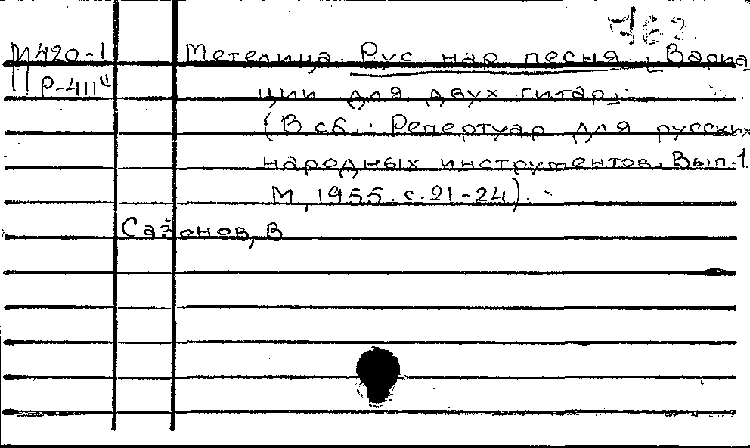 762.
М420-1 Метелица. Рус. нар. песня. Вариа
Р-411 ции для двух гитар.
(В сб.: Репертуар для русских
народных инструментов. Вып. 1
М, 1955. с. 21-24).
Сазонов, В